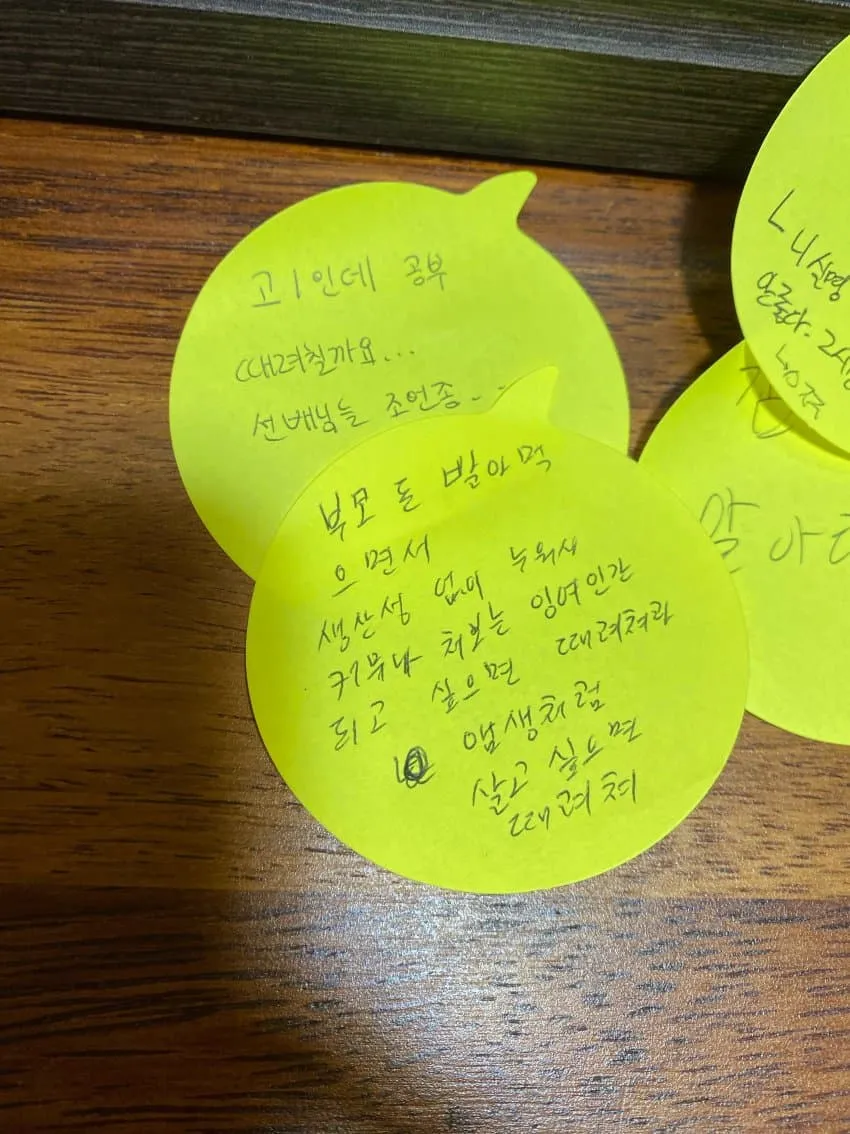 고1인데 공부
때려칠까요...
선배님들 조언좀...
부모 돈 빨아먹
으면서
생산성 없이 누워서
커뮤나 쳐보는 잉여인간
되고 싶으면 때려쳐라
앰생처럼
살고 싶으면
때려쳐
ㄴ 니 실명